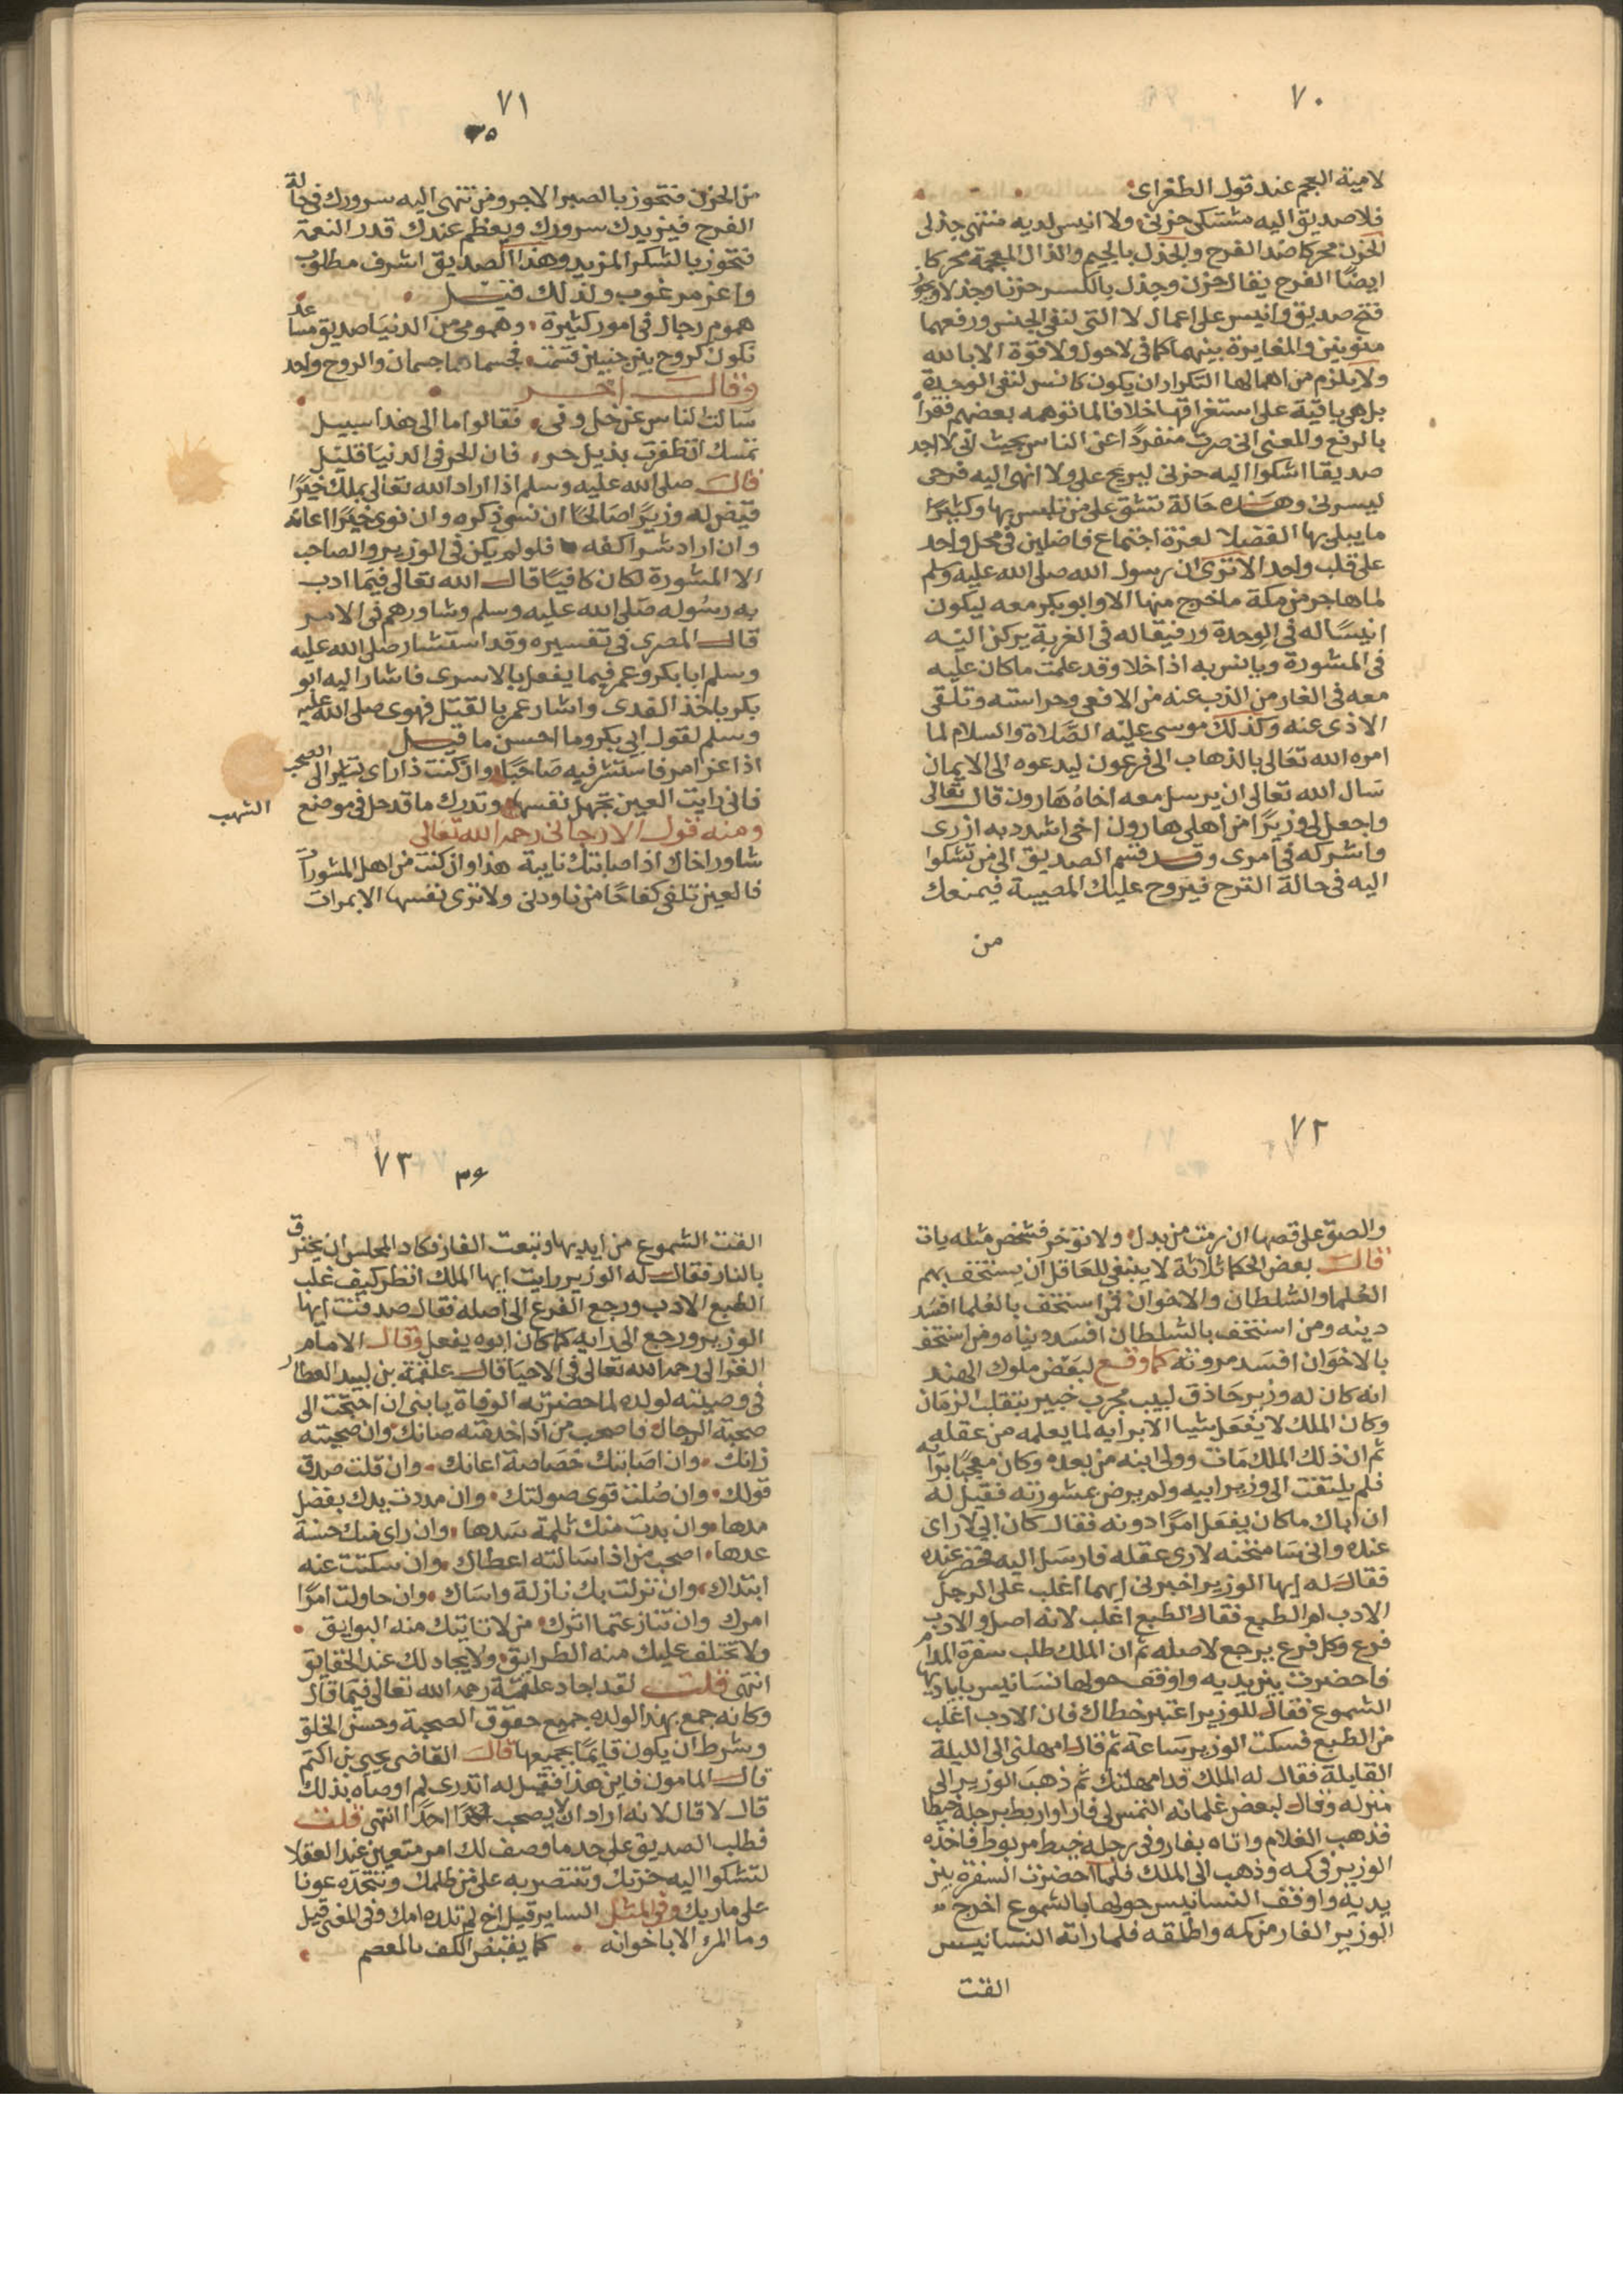 ٧٠
لامية العجم عند قول الطغراى
فلا صديق اليه مشتكى حزنى ولا انيس لديه منتهى جذلى
الحزن محركا ضد الفرح والجذل بالجيم والذال المعجمة محركا
ايضا الفرح يقال حزن وجذل بالكسر حزنا وجذلا ويجوز
فتح صديق وانيس على اعمال لا التى لنفى الجنس ورفعهما
منونين والمغايرة بينهما كما فى لا حول ولا قوة الا بالله
ولا يلزم من اهمالها التكرار ان يكون كانس لنفى الوحدة
بل هى باقية على استغراقها خلافا لما توهمه بعضهم فقرأ
بالرفع والمعنى انى صرت منفردا عن الناس بحيث انى لا اجد
صديقا اشكوا اليه حزنى ليريح على ولا انهى اليه فرحى
ليسرنى وهذه حالة تشق على من تلبس بها وكثيرا
ما يبلى بها الفضلا لعزة اجتماع فاضلين فى محل واحد
على قلب واحد الا ترى ان رسول الله صلى الله عليه وسلم
لما هاجر من مكة ما خرج منها الا وابو بكر معه ليكون
انيسا له فى الوحدة ورفيقا له فى الغربة يركن اليه
فى المشورة ويانس به اذا خلا وقد علمت ما كان عليه
معه فى الغار من الذب عنه من الافعى وحراسته وتلقى
الاذى عنه وكذلك موسى عليه الصلاة والسلام لما
امره الله تعالى بالذهاب الى فرعون ليدعوه الى الايمان
سال الله تعالى ان يرسل معه اخاه هارون قال تعالى
واجعل لى وزيرا من اهلى هارون اخى اشدد به ازرى
واشركه فى امرى وقد قسم الصديق الى من تشكوا
اليه فى حالة الترح فيروح عليك المصيبة فيمنعك
من
٧١
٣٥
من الحزن فتحوز بالصبر الاجر ومن تنهى اليه سرورك فى حالة
الفرح فيزيدك سرورك ويعظم عندك قدر النعمة
فتحوز بالشكر المزيد وهذا الصديق اشرف مطلوب
واعز مرغوب ولذلك قيل
هموم رجال فى امور كثيرة وهمومى من الدنيا صديق مساعد
نكون كروح بين جنبين قسمت فجسماهما جسمان والروح واحد
وقال اخر
سالت الناس عن خل وفى فقالوا ما الى هذا سبيل
تمسك ان ظفرت بذيل حر فان الحر فى الدنيا قليل
قال صلى الله عليه وسلم اذا اراد الله تعالى بملك خيرا
قيض له وزيرا صالحا ان نسى ذكره وان نوى خيرا اعانه
وان اراد شرا كفه فلو لم يكن فى الوزير والصاحب
الا المشورة لكان كافيا قال الله تعالى فيما ادب
به رسوله صلى الله عليه وسلم وشاورهم فى الامر
قال المصرى فى تفسيره وقد استشار صلى الله عليه
وسلم ابا بكر وعمر فيما يفعل بالاسرى فاشار اليه ابو
بكر باخذ الفدى واشار عمر بالقتل فهوى صلى الله عليه
وسلم لقول ابى بكر وما احسن ما قيل
اذا عز امر فاستشر فيه صاحبا وان كنت ذا راى تشير الى الصحب
فانى رايت العين تجهل نفسها وتدرك ما قد حل فى موضع الشهب
ومنه قول الارجانى رحمه الله تعالى
شاور اخاك اذا صابتك نايبة هذا وان كنت من اهل المشورات
فالعين تلقى كفاحا من نا ودنى ولا ترى نفسها الا بمرات
٧٢
قال بعض الحكما ثلاثة لا ينبغى للعاقل ان يستخف بهم
العلما والسلطان والاخوان فمن استخف بالعلما افسد
دينه ومن استخف بالسلطان افسد دنياه ومن استخف
بالاخوان افسد مروته كما وقع لبعض ملوك الهند
انه كان له وزير حاذق لبيب مجرب خبير بتقلب الزمان
وكان الملك لا يفعل شيا الا برايه لما يعلمه من عقله
ثم ان ذلك الملك مات وولى ابنه من بعده وكان معجبا برايه
فلم يلتفت الى وزير ابيه ولم يرض بمشورته فقيل له
ان اباك ما كان يفعل امرا دونه فقال كان ابى لا راى
عنده وانى سامتحنه لارى عقله فارسل اليه فحضر عنده
فقال له ايها الوزير اخبرنى ايهما اغلب على الرجل
الادب ام الطبع فقال الطبع اغلب لانه اصل والادب
فرع وكل فرع يرجع لاصله ثم ان الملك طلب سفرة المدام
فاحضرت بين يديه واوقف حولها نسانيس باياديها
الشموع فقال للوزير اعتبر خطاك فان الادب اغلب
من الطبع فسكت الوزير ساعة ثم قال امهلنى الى الليلة
القابلة فقال له الملك قد امهلتك ثم ذهب الوزير الى
منزله وقال لبعض غلمانه التمس لى فارا واربط برجله خيطا
فذهب الغلام واتاه بفار وفى رجله خيط مربوط فاخذه
الوزير فى كمه وذهب الى الملك فلما احضرت السفرة بين
يديه واوقف النسانيس حولها بالشموع اخرج
الوزير الفار من كمه واطلقه فلما راته النسانيس
القت
٧٣
٣٦
القت الشموع من ايديها وتبعت الفار فكاد المجلس ان يحترق
بالنار فقال له الوزير رايت ايها الملك انظر كيف غلب
الطبع الادب ورجع الفرع الى اصله فقال صدقت ايها
الوزير ورجع الى رايه كما كان ابوه يفعل وقال الامام
الغزالى رحمه الله تعالى فى الاحيا قال علقمة بن لبيد العطار
فى وصيته لولده لما حضرته الوفاة يا بنى ان احتجت الى
صحبة الرجال فاصحب من اذا خدمته صانك وان صحبته
زانك وان اصابتك خصاصة اعانك وان قلت صدق
قولك وان صلت قوى صولتك وان مددت يدك بفضل
مدها وان بدت منك ثلمة سدها وان راى منك حسنة
عدها اصحب من اذا سالته اعطاك وان سكتت عنه
ابتداك وان نزلت بك نازلة واساك وان حاولت امرا
امرك وان تنازعتما اثرك من لا تاتيك منه البوايق
ولا تختلف عليك منه الطرايق ولا يجادلك عند الحقايق
انتهى قلت لقد اجاد علقمة رحمه الله تعالى فيما قال
وكانه جمع بهذا لولده جميع حقوق الصحبة وحسن الخلق
وشرط ان يكون قايما بجميعها قال القاضى يحيى بن اكثم
قال المامون فاين هذا فقيل له اتدرى لم اوصاه بذلك
قال لا قال لانه اراد ان لا يصحب احدا انتهى قلت
فطلب الصديق على حد ما وصف لك امر متعين عند العقلا
لتشكوا اليه حزنك وتنتصر به على من ظلمك وتتخذه عونا
على ماربك وفى المثل الساير قيل اخ لم تلده امك وفى المعنى قيل
وما المرء الا باخوانه كما يقبض الكف بالمعصم